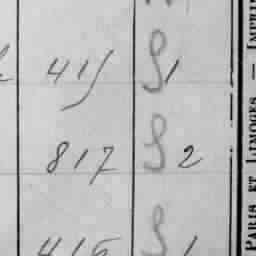 415 S1
817 S 2
416 S 1
PARIS ET LIMOGES. — IMPRI